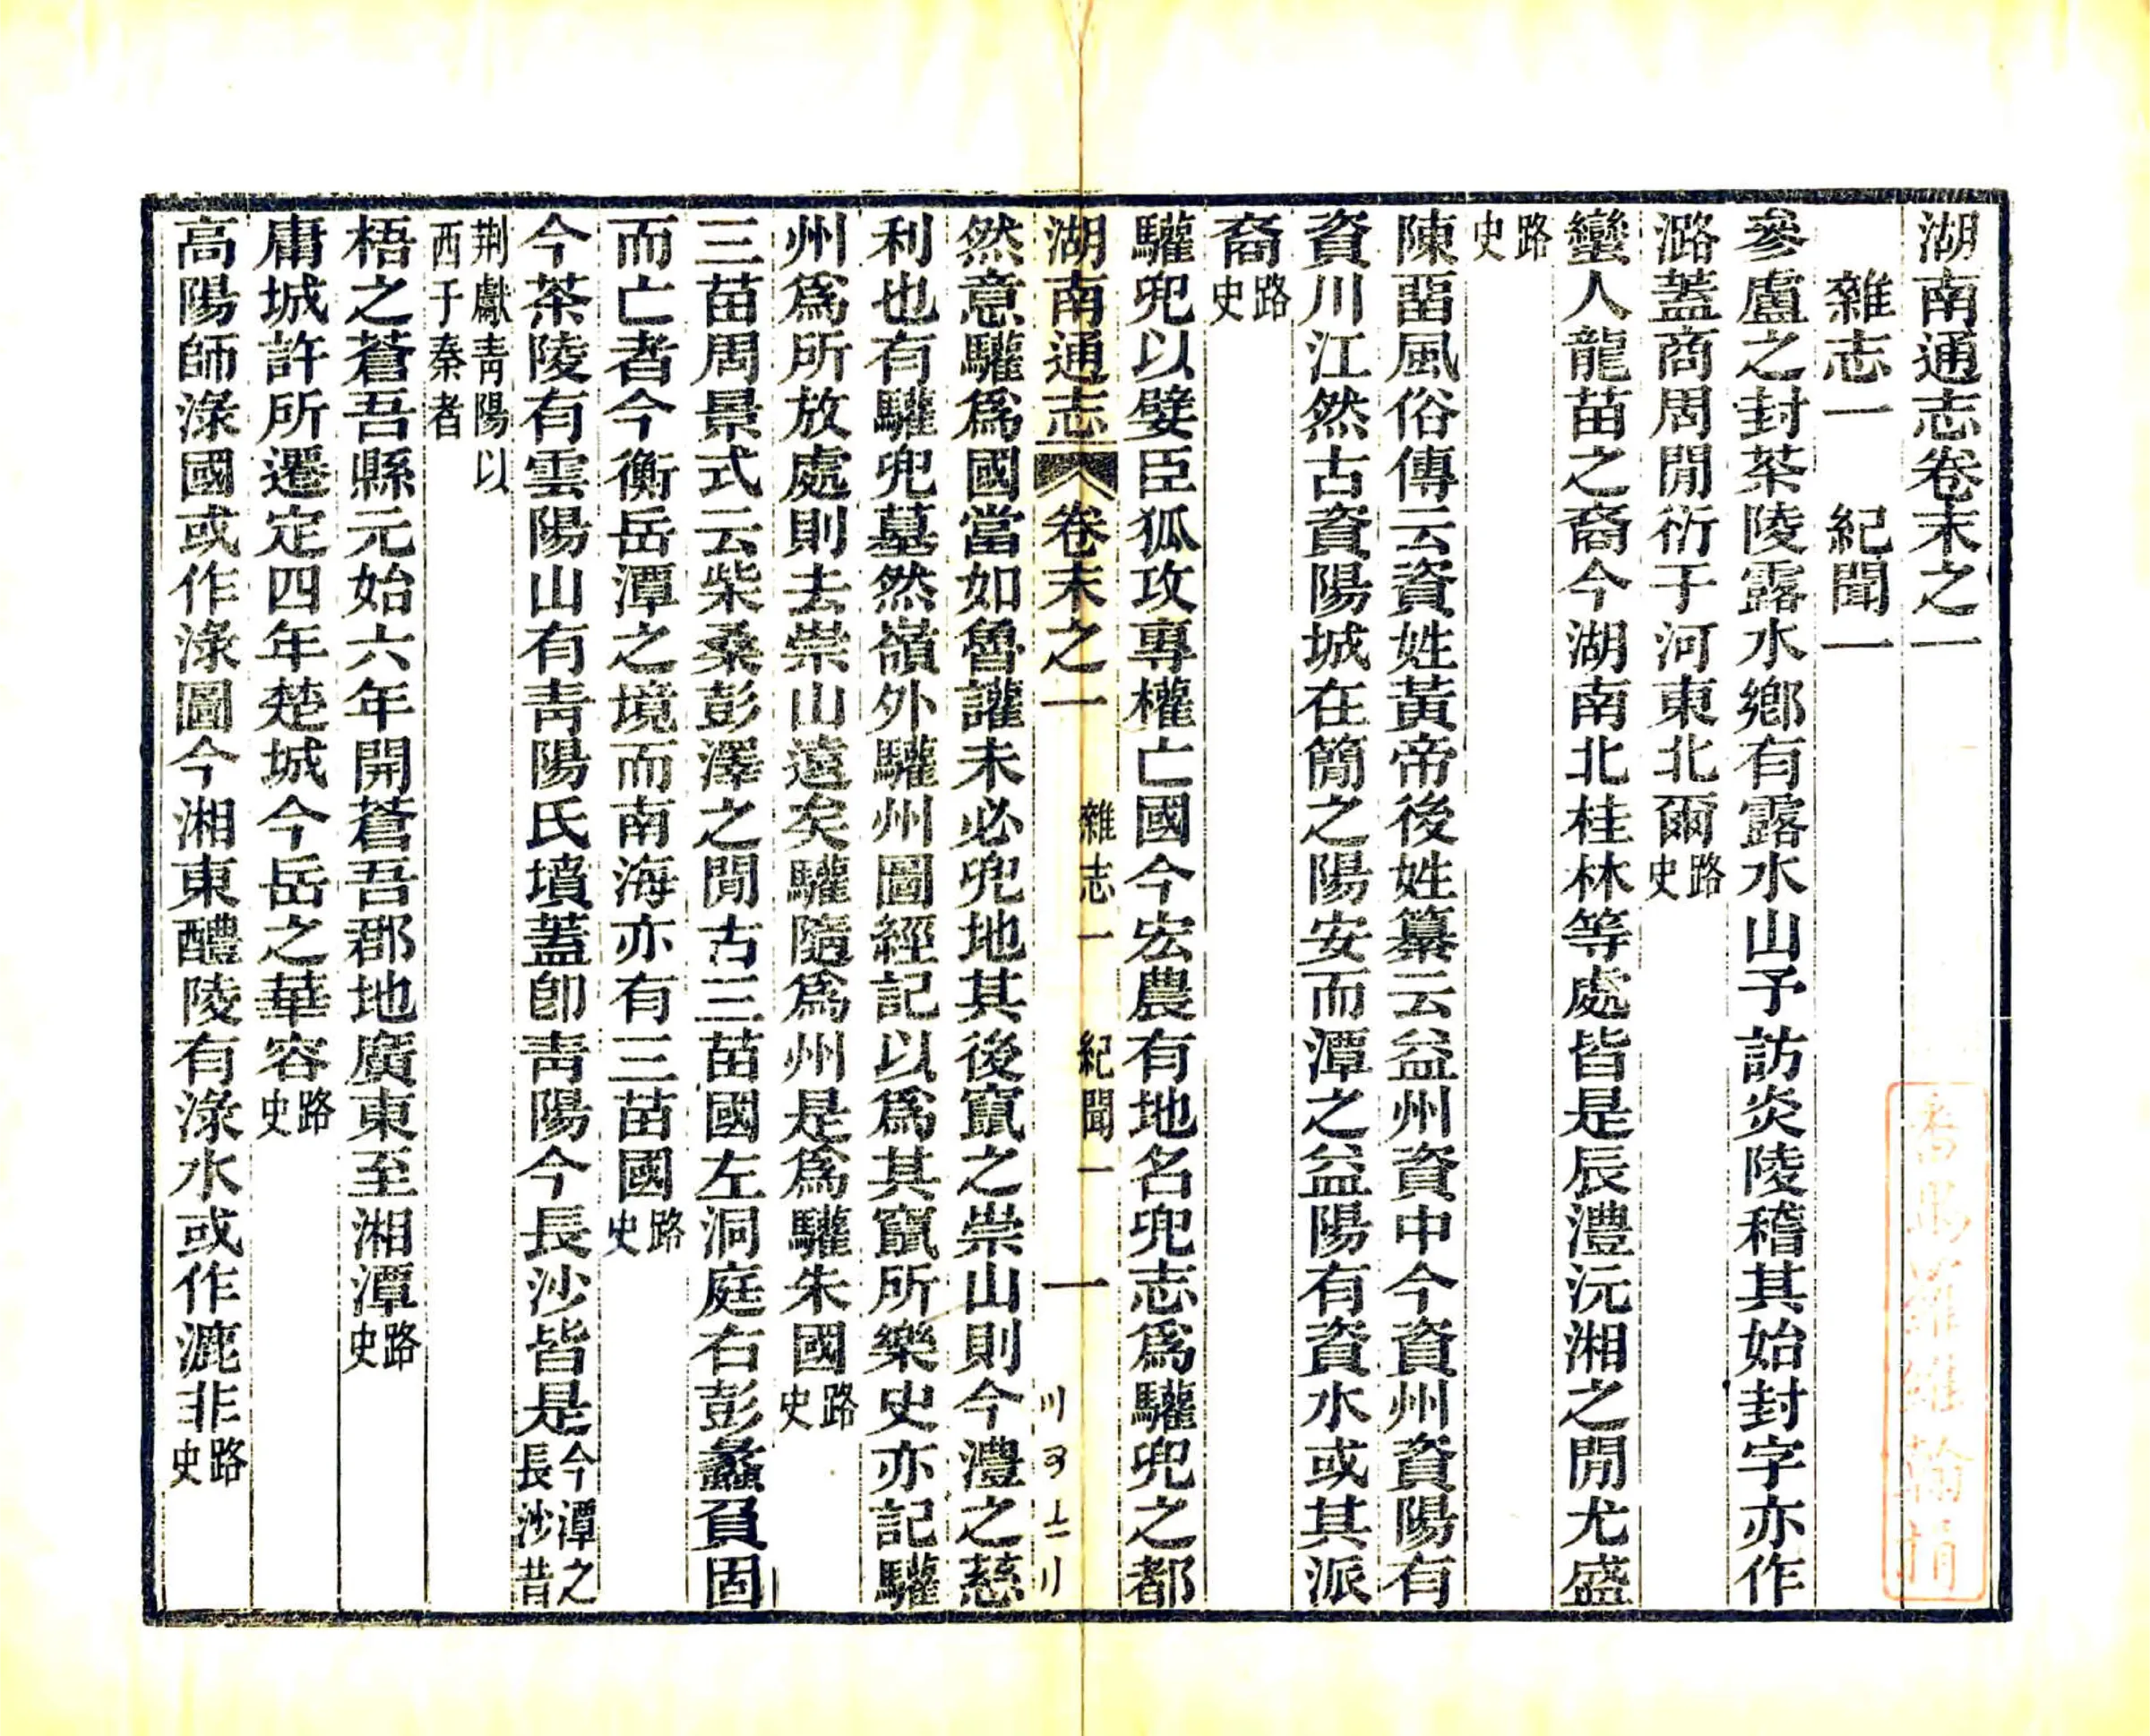 湖南通志卷末之一
雜志一　紀聞一
參盧之封茶陵露水鄉有露水山予訪炎陵稽其始封字亦作
潞蓋商周閒衍于河東北爾路史
蠻人龍苗之裔今湖南北桂林等處皆是辰澧沅湘之閒尤盛
路史
陳畱風俗傳云資姓黃帝後姓纂云益州資中今資州資陽有
資川江然古資陽城在簡之陽安而潭之益陽有資水或其派
裔路史
驩兜以嬖臣狐攻專權亡國今宏農有地名兜志爲驩兜之都
湖南通志 卷末之一 雜志一 紀聞一 一
然意驩爲國當如魯讙未必兜地其後竄之崇山則今澧之慈
利也有驩兜墓然嶺外驩州圖經記以爲其竄所樂史亦記驩
州爲所放處則去崇山遠矣驩隨爲州是爲驩朱國路史
三苗周景式云柴桑彭澤之閒古三苗國左洞庭右彭蠡負固
而亡者今衡岳潭之境而南海亦有三苗國路史
今茶陵有雲陽山有靑陽氏墳蓋卽靑陽今長沙皆是今潭之長沙昔
荆獻靑陽以西于秦者
梧之蒼吾縣元始六年開蒼吾郡地廣東至湘潭路史
庸城許所遷定四年楚城今岳之華容路史
高陽師淥國或作淥圖今湘東醴陵有淥水或作漉非路史